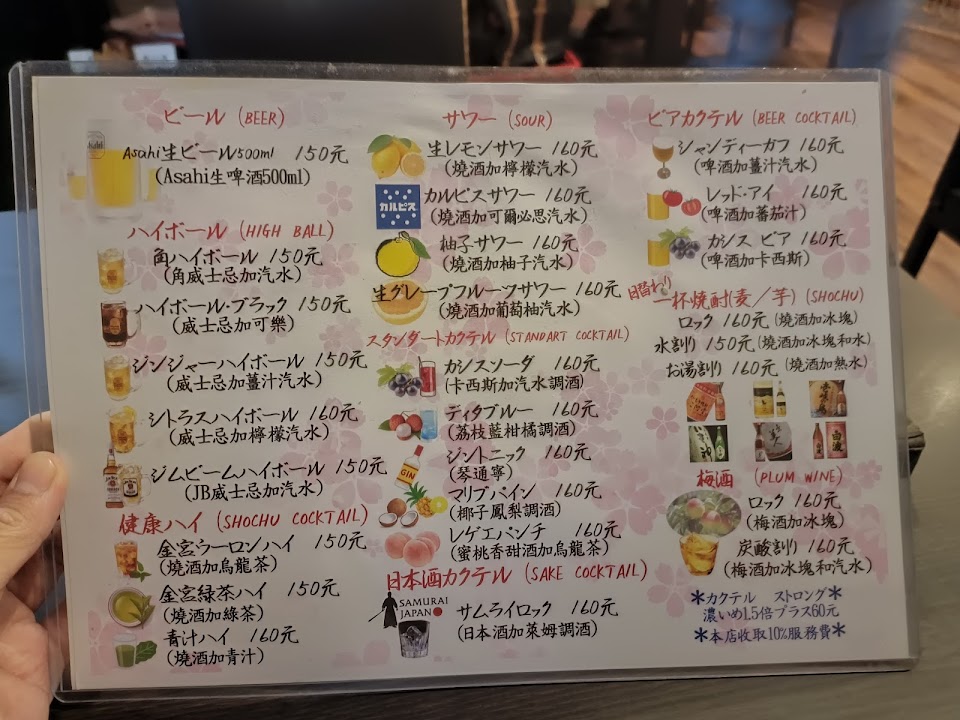 ビール (BEER)
Asahi生ビール500ml 150元
(Asahi生啤酒500ml)
ハイボール (HIGH BALL)
角ハイボール 150元
(角威士忌加汽水)
ハイボール・ブラック 150元
(威士忌加可樂)
ジンジャーハイボール 150元
(威士忌加薑汁汽水)
シトラスハイボール 160元
(威士忌加檸檬汽水)
ジムビームハイボール 150元
(JB威士忌加汽水)
健康ハイ (SHOCHU COCKTAIL)
金宮ウーロンハイ 150元
(燒酒加烏龍茶)
金宮緑茶ハイ 150元
(燒酒加綠茶)
青汁ハイ 160元
(燒酒加青汁)
サワー (SOUR)
生レモンサワー 160元
(燒酒加檸檬汽水)
カルピス
カルピスサワー 160元
(燒酒加可爾必思汽水)
柚子サワー 160元
(燒酒加柚子汽水)
生グレープフルーツサワー 160元
(燒酒加葡萄柚汽水)
スタンダートカクテル (STANDART COCKTAIL)
カシスソーダ 160元
(卡西斯加汽水調酒)
ディタブルー 160元
(荔枝藍柑橘調酒)
GIN
ジントニック 160元
(琴通寧)
マリブパイン 160元
(椰子鳳梨調酒)
レゲエパンチ 160元
(蜜桃香甜酒加烏龍茶)
日本酒カクテル (SAKE COCKTAIL)
SAMURAI
JAPAN
サムライロック 160元
(日本酒加萊姆調酒)
ビアカクテル (BEER COCKTAIL)
シャンディーガフ 160元
(啤酒加薑汁汽水)
レッド・アイ 160元
(啤酒加蕃茄汁)
カシス ビア 160元
(啤酒加卡西斯)
日替わり
一杯焼酎(麦/芋) (SHOCHU)
ロック 160元 (燒酒加冰塊)
水割り 150元 (燒酒加冰塊和水)
お湯割り 160元 (燒酒加熱水)
白波
梅酒 (PLUM WINE)
ロック 160元
(梅酒加冰塊)
炭酸割り 160元
(梅酒加冰塊和汽水)
*カクテル ストロング*
濃いめ1.5倍プラス60元
*本店收取10%服務費*